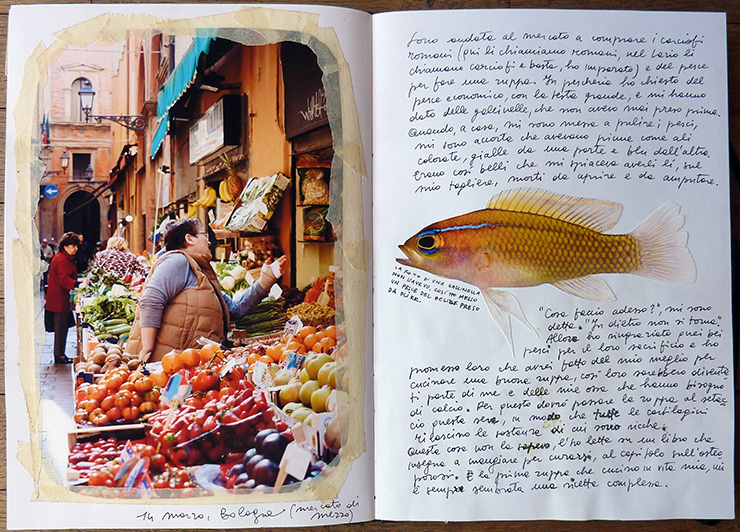 14 marzo, Bologna (mercato di
mezzo)
Sono andata al mercato a comprare i carciofi
romani (qui li chiamiamo romani, nel Lazio li
chiamano carciofi e basta, ho imparato) e del pesce
per fare una zuppa. In pescheria ho chiesto del
pesce economico, con la testa grande, e mi hanno
dato delle gallinelle, che non avevo mai preso prima.
Quando, a casa, mi sono messa a pulire i pesci,
mi sono accorta che avevano pinne come ali
colorate, gialle da una parte e blu dall'altra.
Erano così belli che mi spiaceva averli lì, sul
mio tagliere, morti da aprire e da amputare.
LA FOTO DI UNA GALLINELLA
NON L'AVEVO, COSÌ HO MESSO
UN PESCE DEL BELIZE PRESO
DA FLICKR.
"Cosa faccio adesso?", mi sono
detta. "Indietro non si torna".
Allora ho ringraziato quei bei
pesci per il loro sacrificio e ho
promesso loro che avrei fatto del mio meglio per
cucinare una buona zuppa, così loro sarebbero diventa
ti parte di me e delle mie ossa che hanno bisogno
di calcio. Per questo dovrò passare la zuppa al setac
cio questa sera, in modo che tutte le cartilagini
rilascino le sostanze di cui sono ricche.
Questa cosa non la sapevo, l'ho letta su un libro che
insegna a mangiare per curarsi, al capitolo sull'osteo
porosi. È la prima zuppa che cucino in vita mia, mi
è sempre sembrata una ricetta complessa.